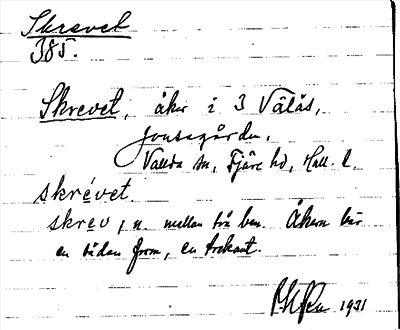 Skrevet
385.
Skrevet, åker i 3 Välås,
Jonsegården,
Vallda sn, Fjäre hd, Hall. l.
skrévet.
skrev, n. mellan två ben. Åkern har
en sådan form, en trekant.
1931